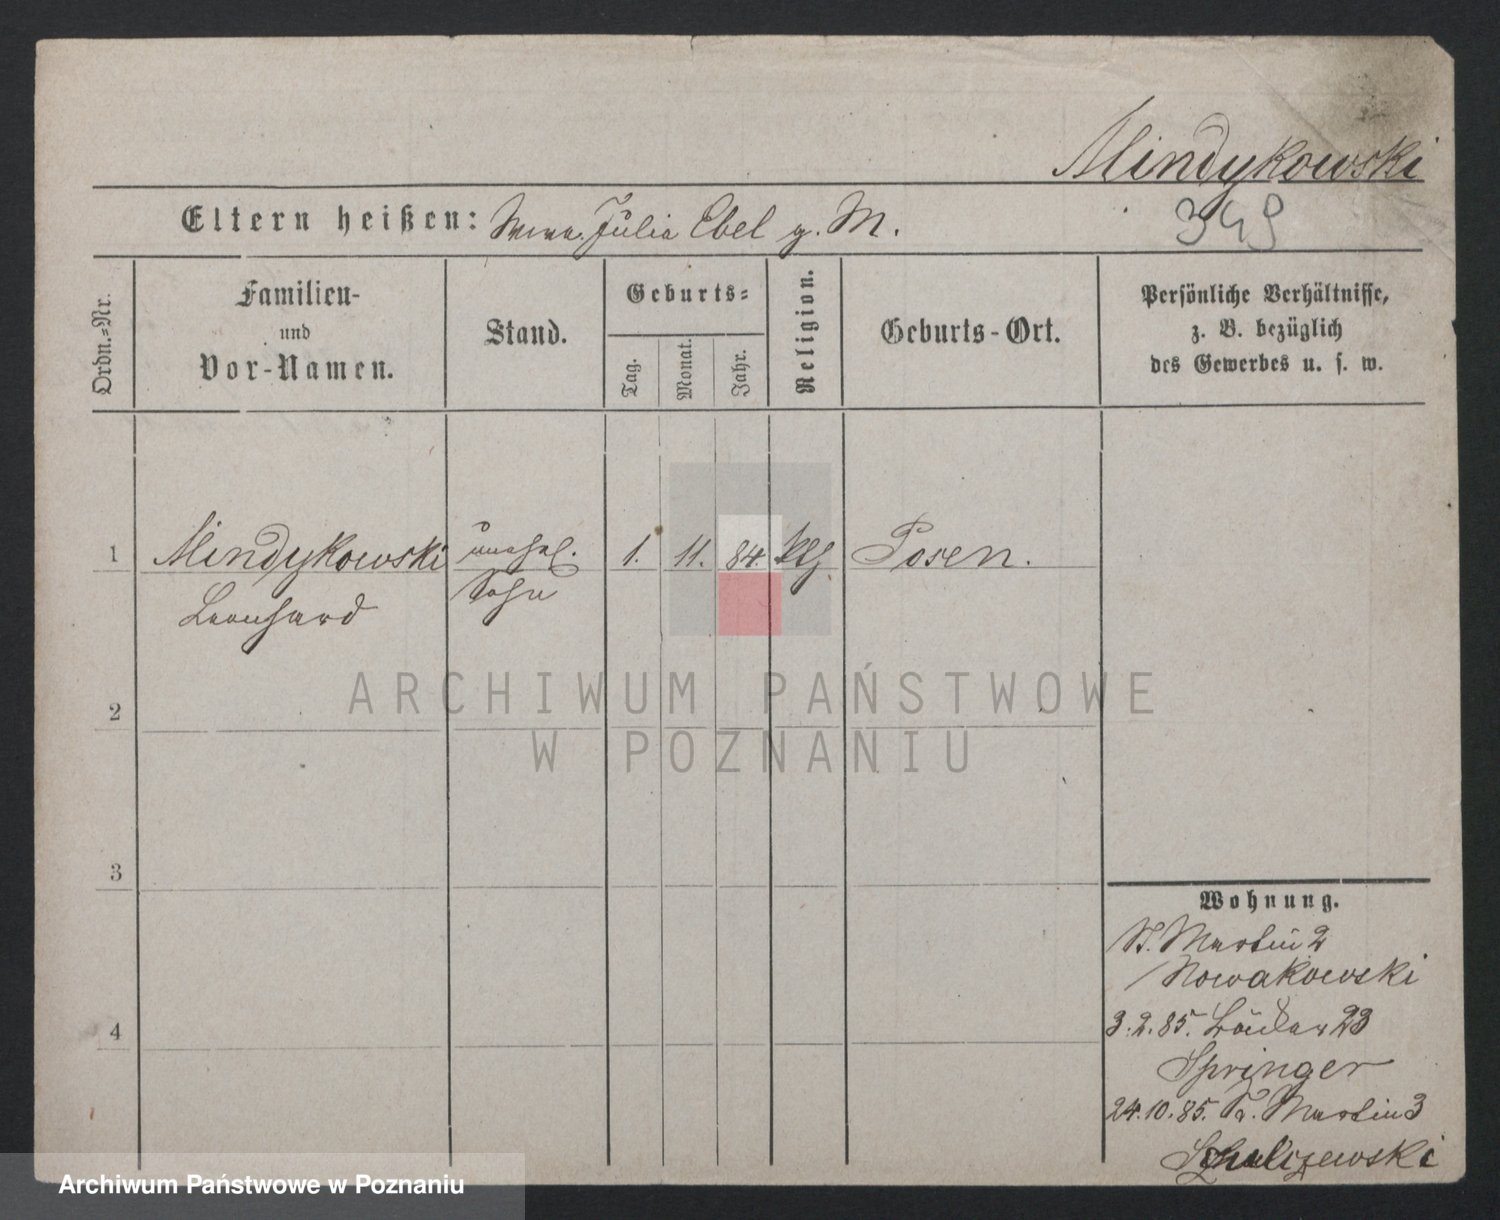 Mindykowski
Eltern heißen: Julia Ebel g. M.
349
Ordn.-Nr.
Familien-
und
Vor-Namen.
Stand.
Geburts-
Tag.
Monat.
Jahr.
Religion.
Geburts-Ort.
Persönliche Verhältnisse,
z. B. bezüglich
des Gewerbes u. s. w.
1 Mindykowski unehel. 1. 11. 84. Posen.
Leonhard Sohn
2
3
4
Wohnung.
St. Martin 2
Nowakowski
3.2.85. 23
Springer
24.10.85. St. Martin 3
ARCHIWUM PAŃSTWOWE
W POZNANIU
Archiwum Państwowe w Poznaniu